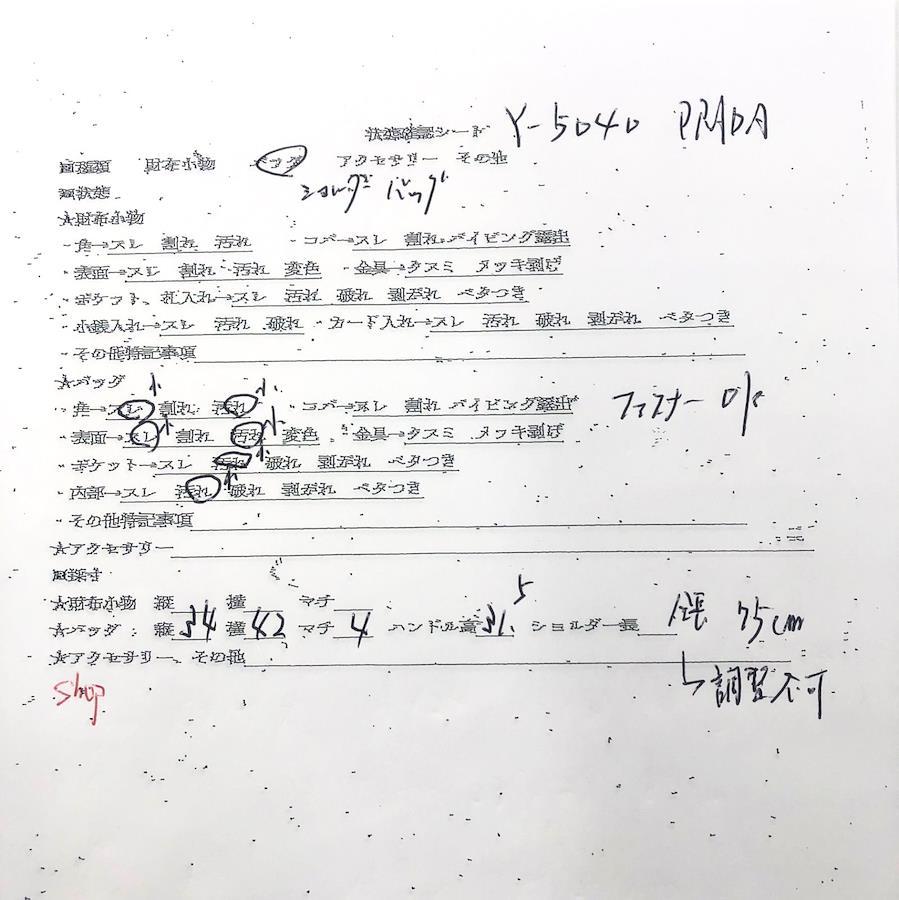 状態確認シート Y-5040 PRADA
□種類 財布小物 バッグ アクセサリー その他
ショルダーバッグ
□状態
★財布小物
・角→スレ 割れ 汚れ ・コバ→スレ 割れ パイピング露出
・表面→スレ 割れ 汚れ 変色 ・金具→クスミ メッキ剥げ
・ポケット、札入れ→スレ 汚れ 破れ 剥がれ ベタつき
・小銭入れ→スレ 汚れ 破れ ・カード入れ→スレ 汚れ 破れ 剥がれ ベタつき
・その他特記事項
★バッグ
小 小
・角→スレ 割れ 汚れ ・コバ→スレ 割れ パイピング露出 ファスナー O/K
小 小
・表面→スレ 割れ 汚れ 変色 ・金具→クスミ メッキ剥げ
小
・ポケット→スレ 汚れ 破れ 剥がれ ベタつき
小
・内部→スレ 汚れ 破れ 剥がれ ベタつき
・その他特記事項
★アクセサリー
□採寸
★財布小物 縦 横 マチ
★バッグ: 縦 34 横 42 マチ 4 ハンドル高 31.5 ショルダー長 全長 75cm
★アクセサリー、その他
↳調整不可
shop